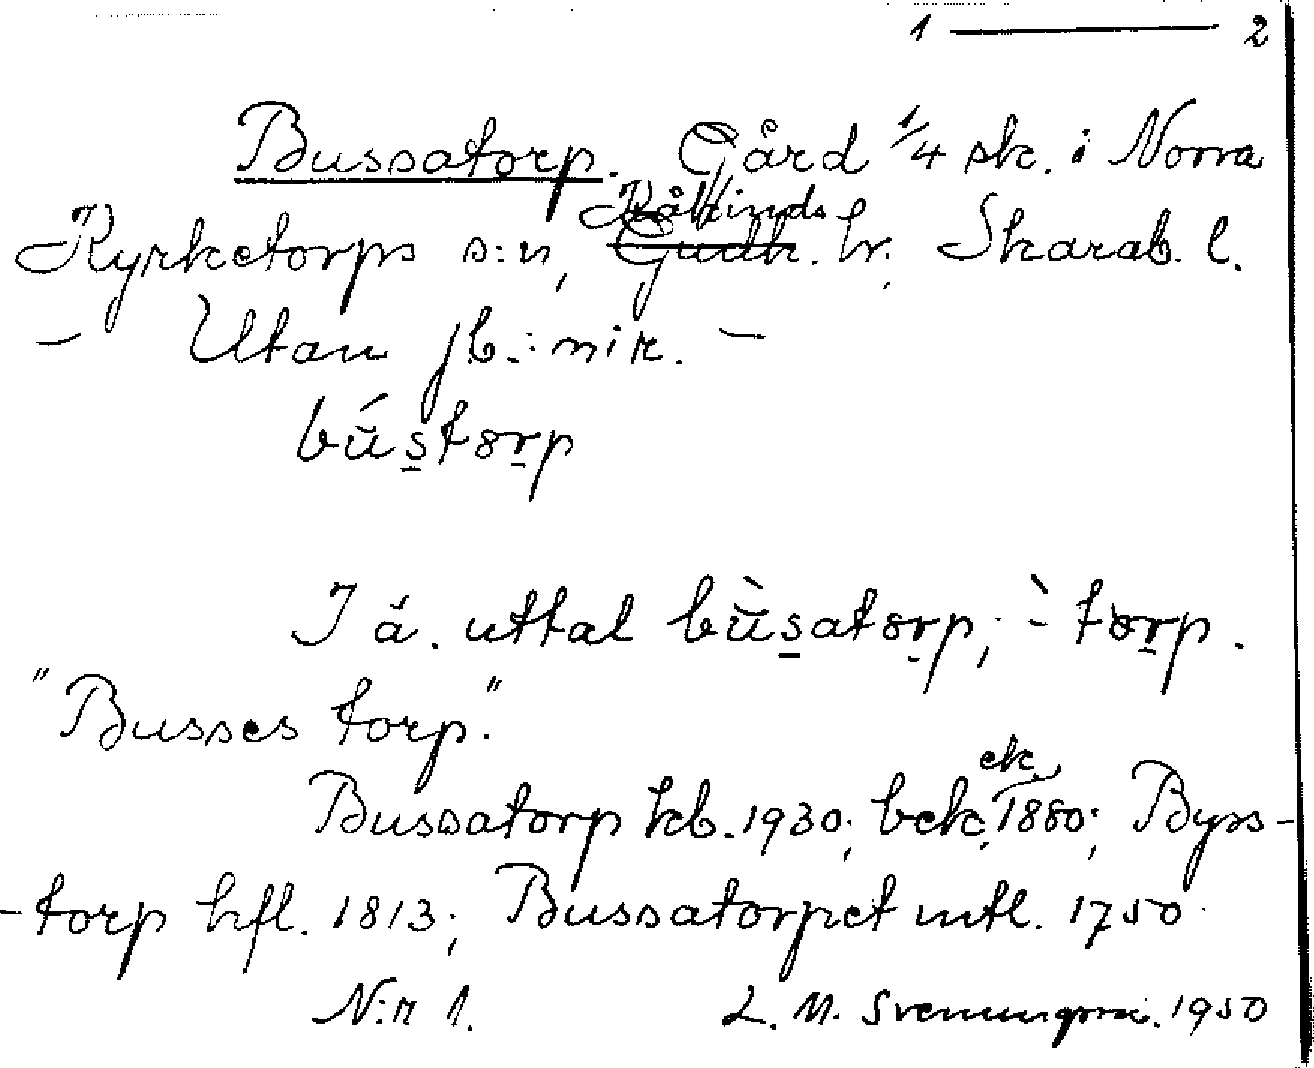 1 — 2
Bussatorp. Gård 1/4 sk. i Norra
Kåkinds
Kyrketorps s:n, Gudh. hr. Skarab. l.
– Utan jb.:nir. –
bū́stȯrp
I ä. uttal bū̀satȯrp, -̀ tȯrp.
"Busses torp."
ek.
Bussatorp kb. 1930; bek. 1880; Byss-
-torp hfl. 1813; Bussatorpet mtl. 1750
N:r 1. L. M. Svenungsson. 1950